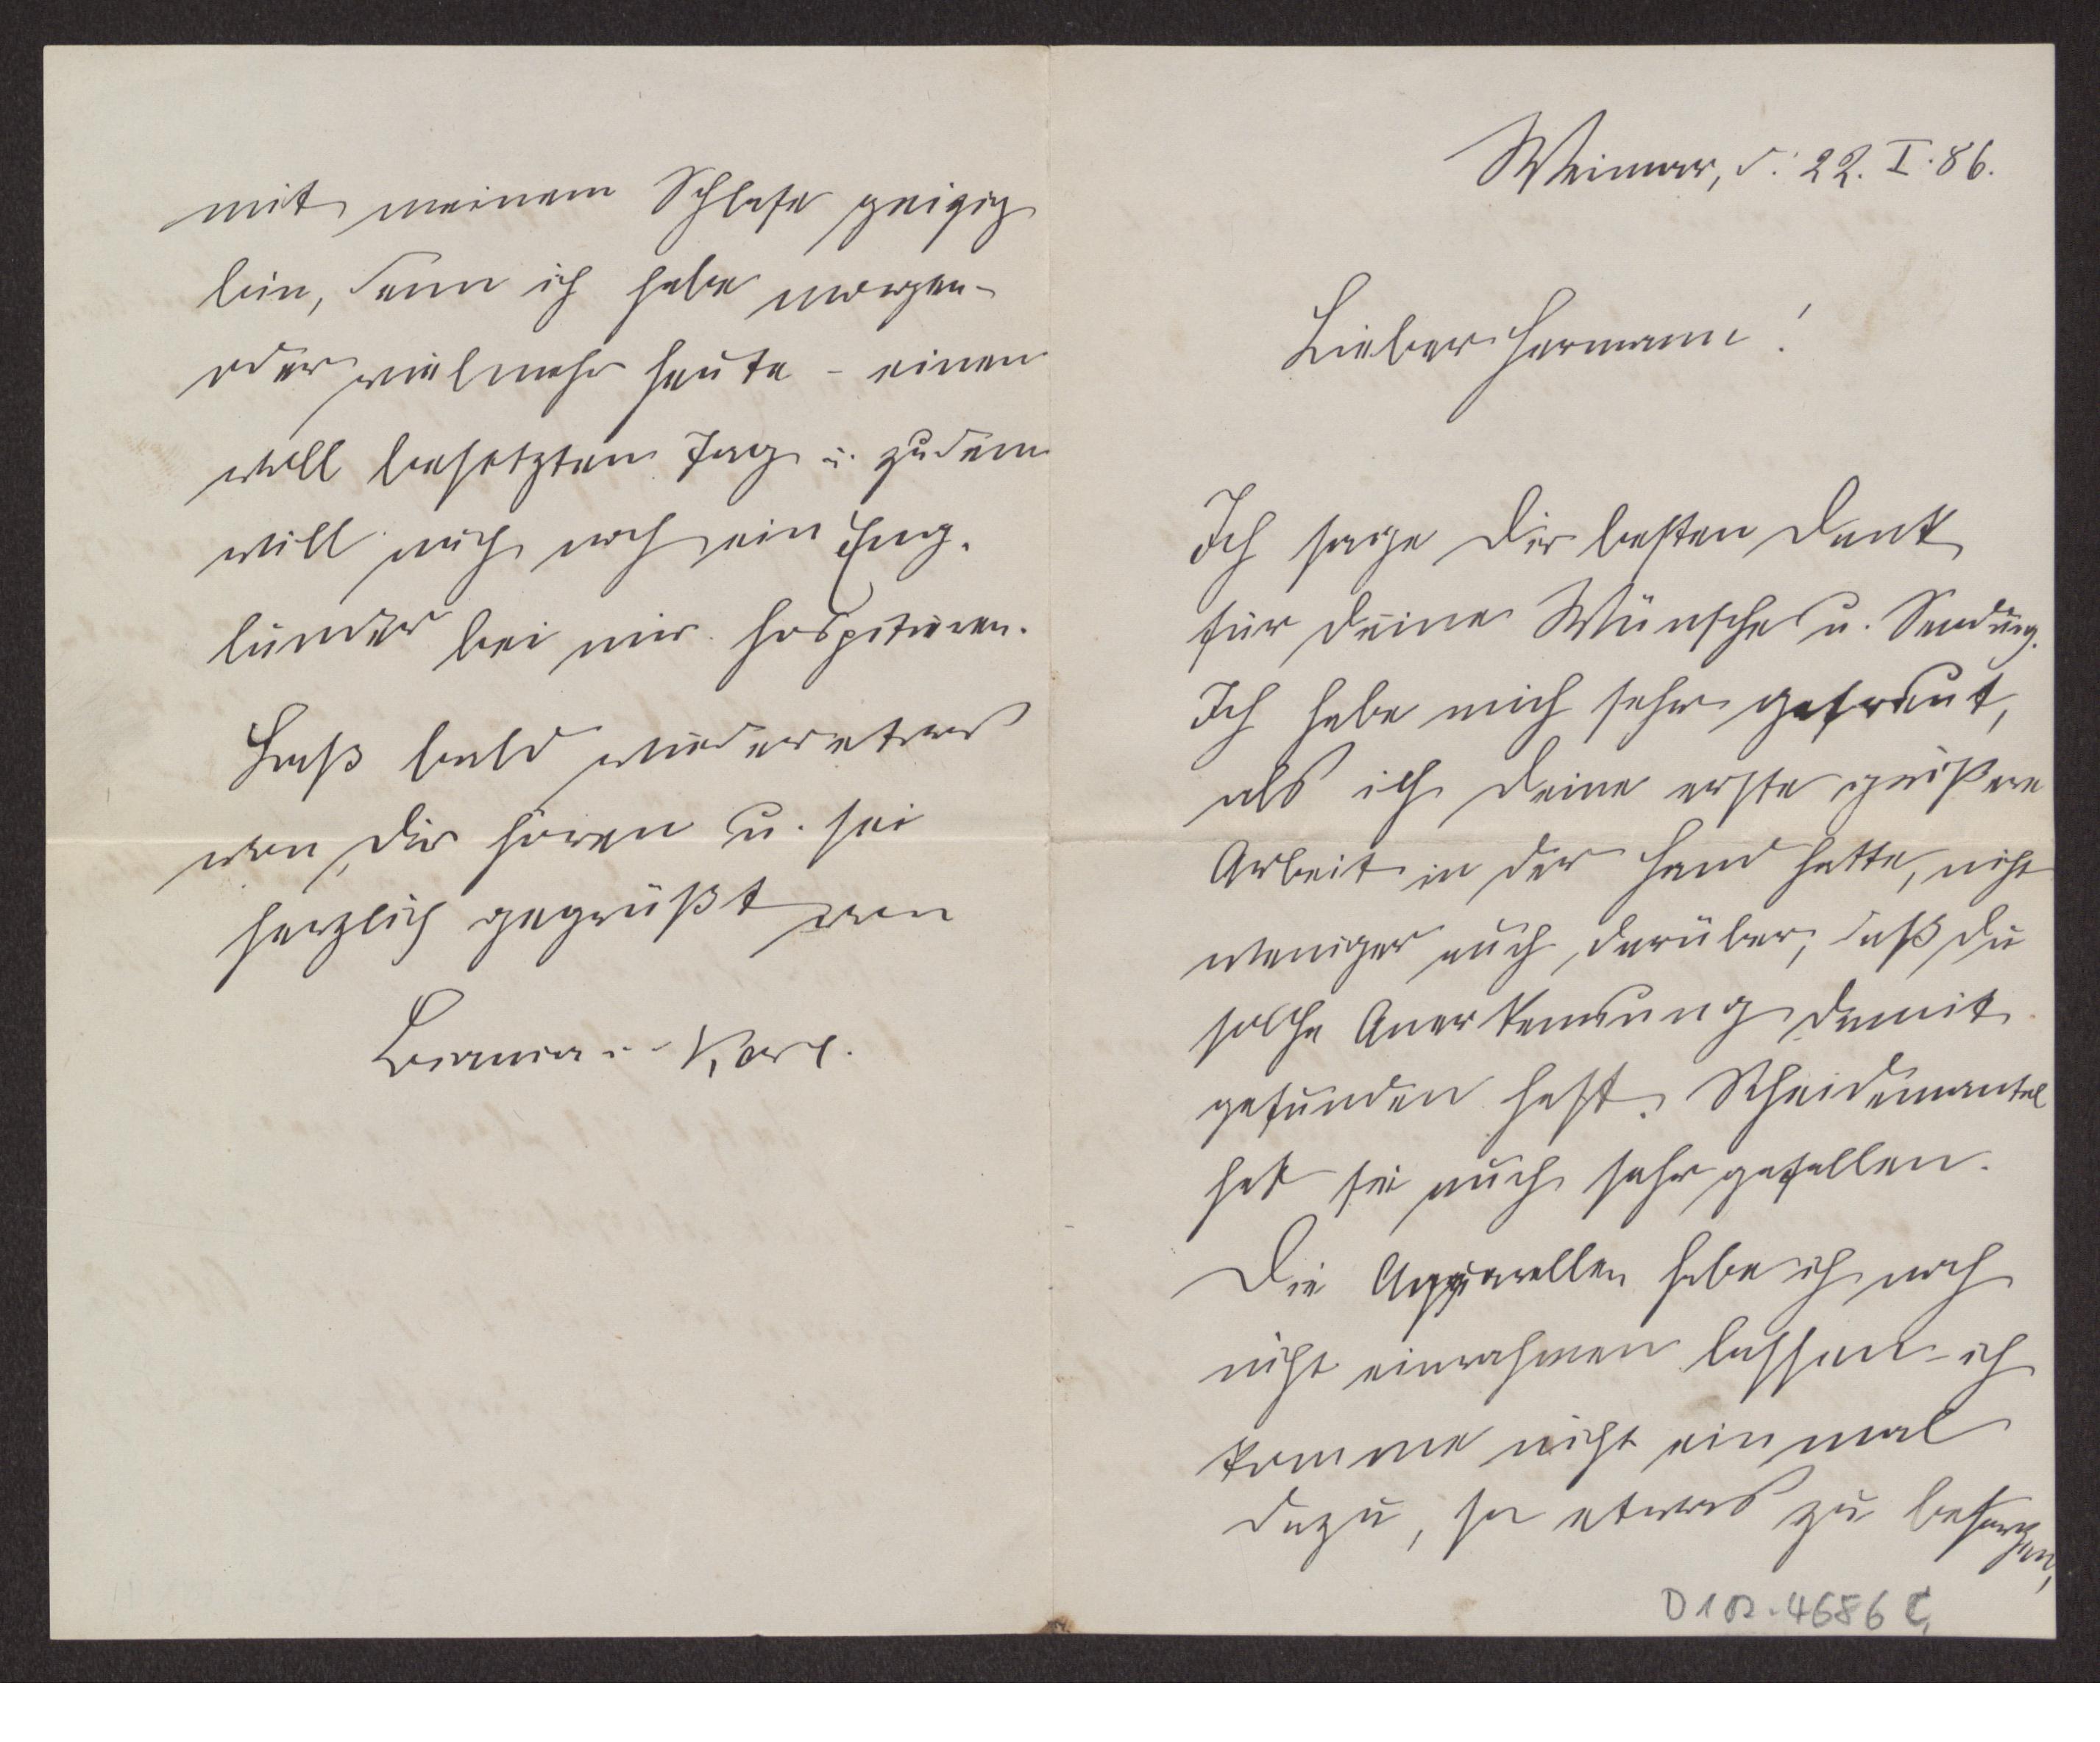 Weimar, d. 22. I. 86.
Lieber Hermann!
Ich sage Dir besten Dank
für Deine Wünsche u. Sendung.
Ich habe mich sehr gefreut,
als ich Deine erste größere
Arbeit in der Hand hatte, nicht
weniger auch darüber, daß Du
solche Anerkennung damit
gefunden hast. Scheidemantel
hat sie auch sehr gefallen.
Die Aquarellen habe ich noch
nicht einrahmen lassen - ich
komme nicht einmal
dazu, so etwas zu besorgen,
D 102.4686 C
mit meinem Schlafe geizig
bin, denn ich habe morgen -
oder vielmehr heute - einen
voll besetzten Tag u. zudem
will mich noch ein Eng.
länder bei mir hospitieren.
Laß bald wieder etwas
von Dir hören u. sei
herzlich gegrüßt von
Karl.